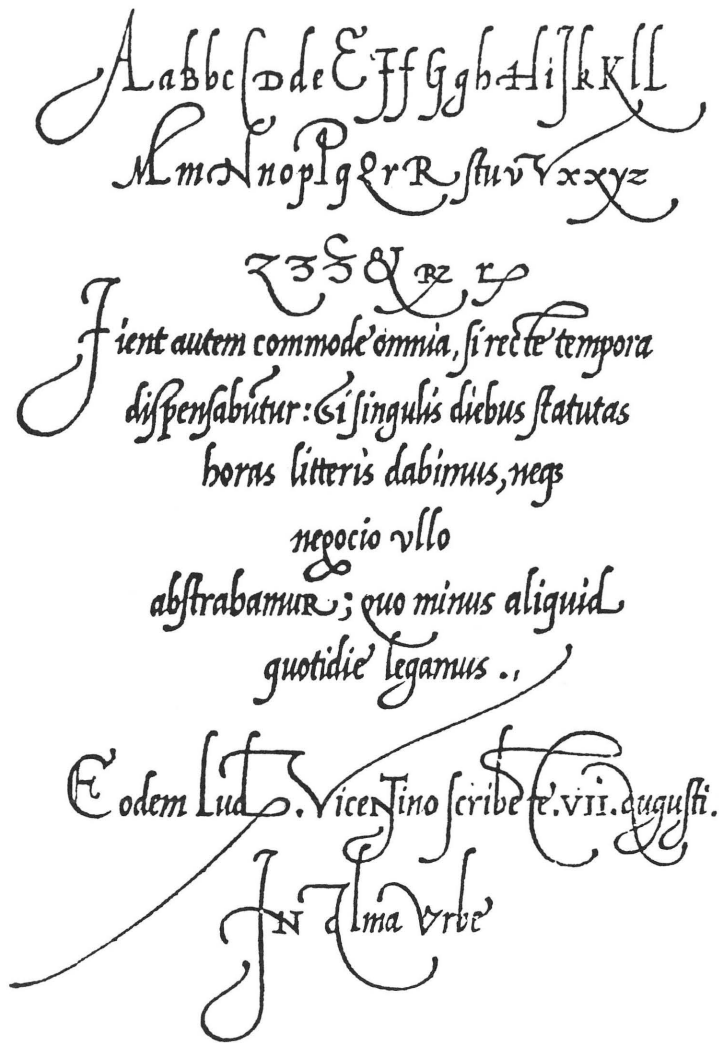 AaBbcCDdeEFfGghHiJkKlL
MmNnopPqQrRſtuvVxxyz
& Rz
Fient autem commode omnia, ſi recte tempora
diſpenſabuntur: Et ſi singulis diebus ſtatutas
horas litteris dabimus, neqꝫ
negocio vllo
abſtrahamur; quo minus aliquid
quotidie legamus .,
Eodem Lud. Vicentino ſcribente. VII. auguſti.
IN alma Vrbe